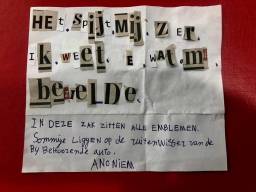 HEt SpijT MIJ ZEr.
Ik WEEt E WAt mi
beZIELDe.
IN DEZE ZAK ZITTEN ALLE EMBLEMEN.
Sommige LIGGEN op de RUITENWISSER van de
By BEHOORENDE auto.
ANONIEM